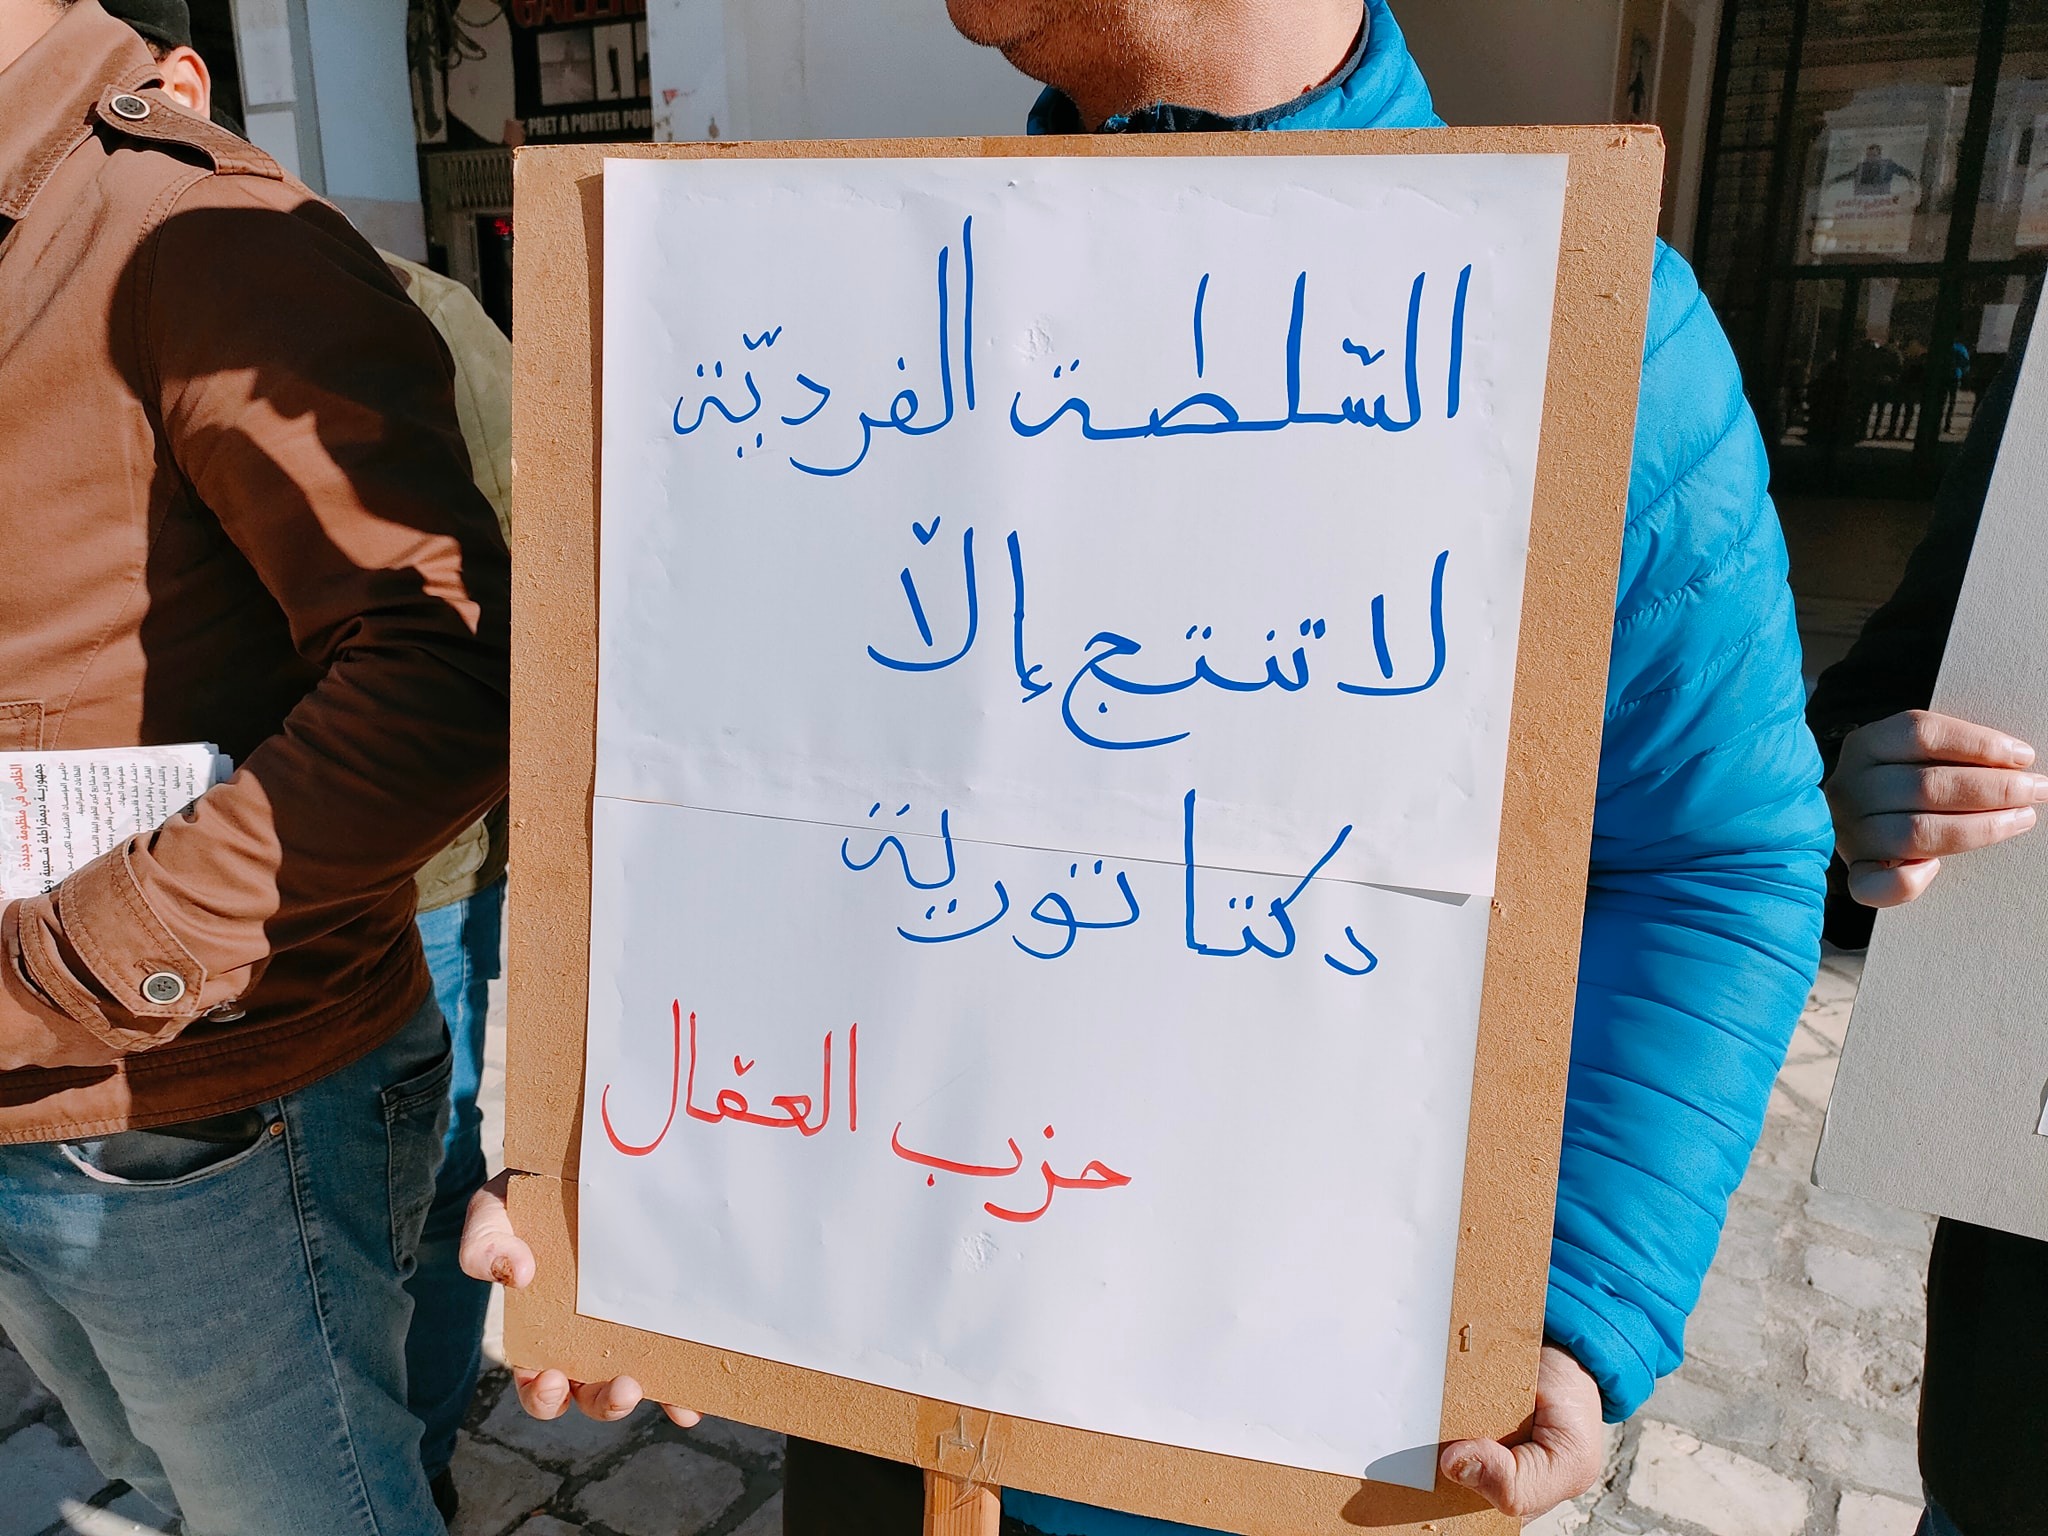 السّلطة الفرديّة
لا تنتج إلاّ
دكتاتورية
حزب العمّال
PRET A PORTER POU
الخلاص في منظومة جديدة:
جمهورية ديمقراطية شعبية